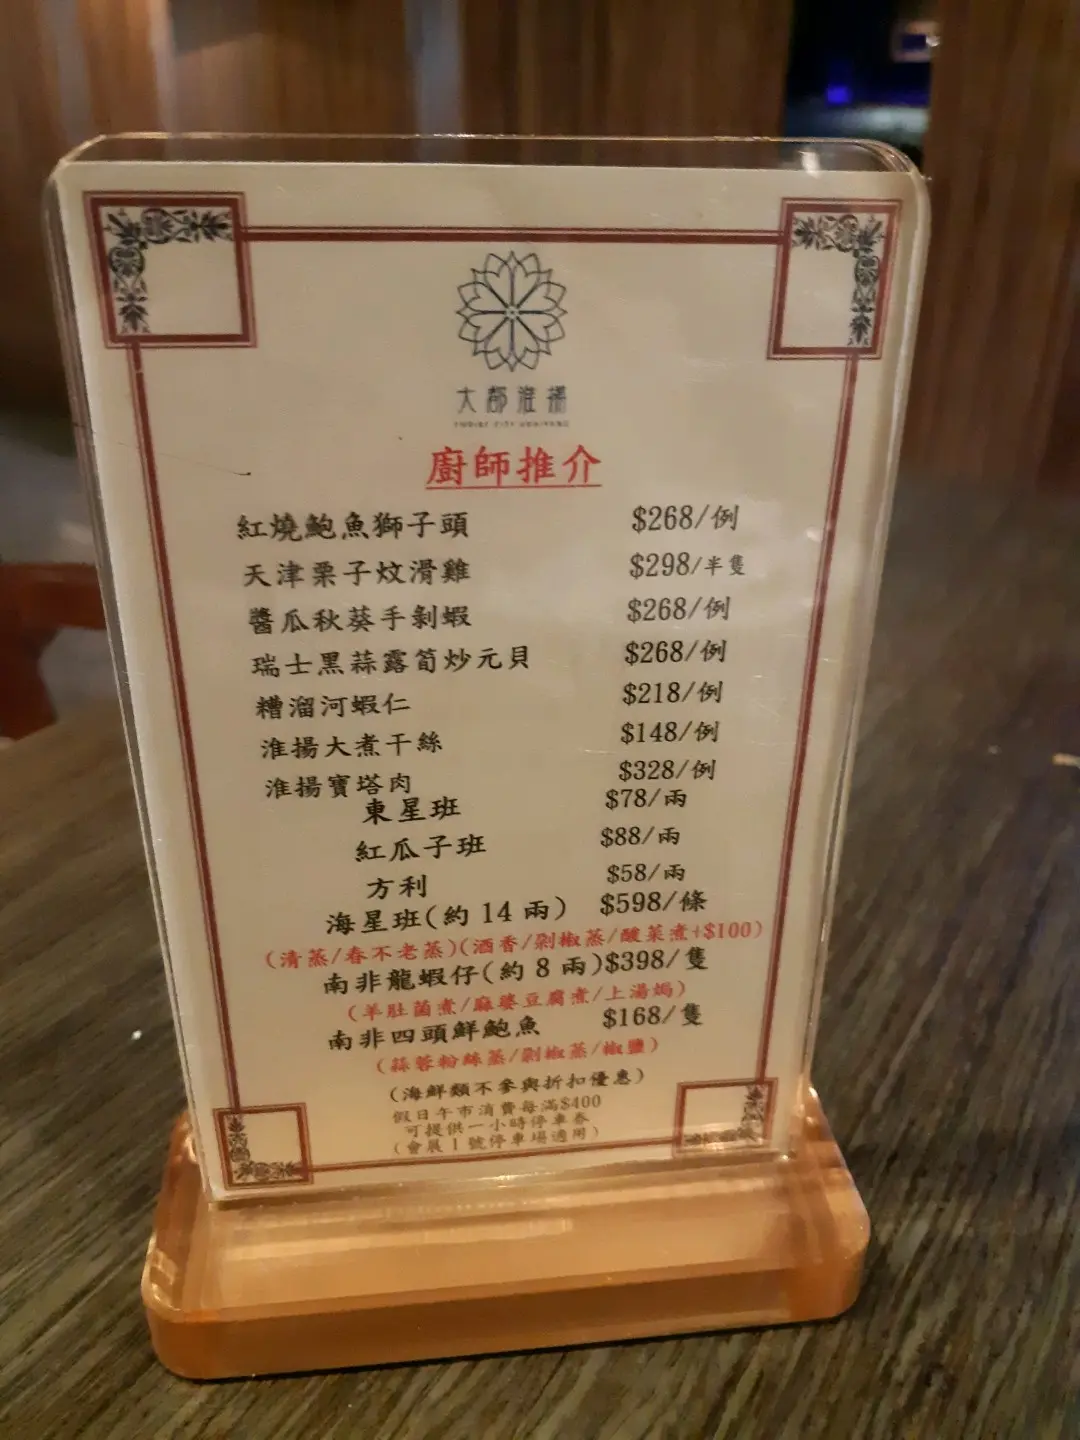 大都淮揚
廚師推介
紅燒鮑魚獅子頭 $268/例
天津栗子炆滑雞 $298/半隻
醬瓜秋葵手剝蝦 $268/例
瑞士黑蒜露筍炒元貝 $268/例
糟溜河蝦仁 $218/例
淮揚大煮干絲 $148/例
淮揚寶塔肉 $328/例
東星班 $78/兩
紅瓜子班 $88/兩
方利 $58/兩
海星班(約 14 兩) $598/條
(清蒸/春不老蒸)(酒香/剁椒蒸/酸菜煮+$100)
南非龍蝦仔(約 8 兩)$398/隻
(羊肚菌煮/麻婆豆腐煮/上湯焗)
南非四頭鮮鮑魚 $168/隻
(蒜蓉粉絲蒸/剁椒蒸/椒鹽)
(海鮮類不參與折扣優惠)
假日午市消費每滿$400
可提供一小時停車券
(會展1號停車場適用)